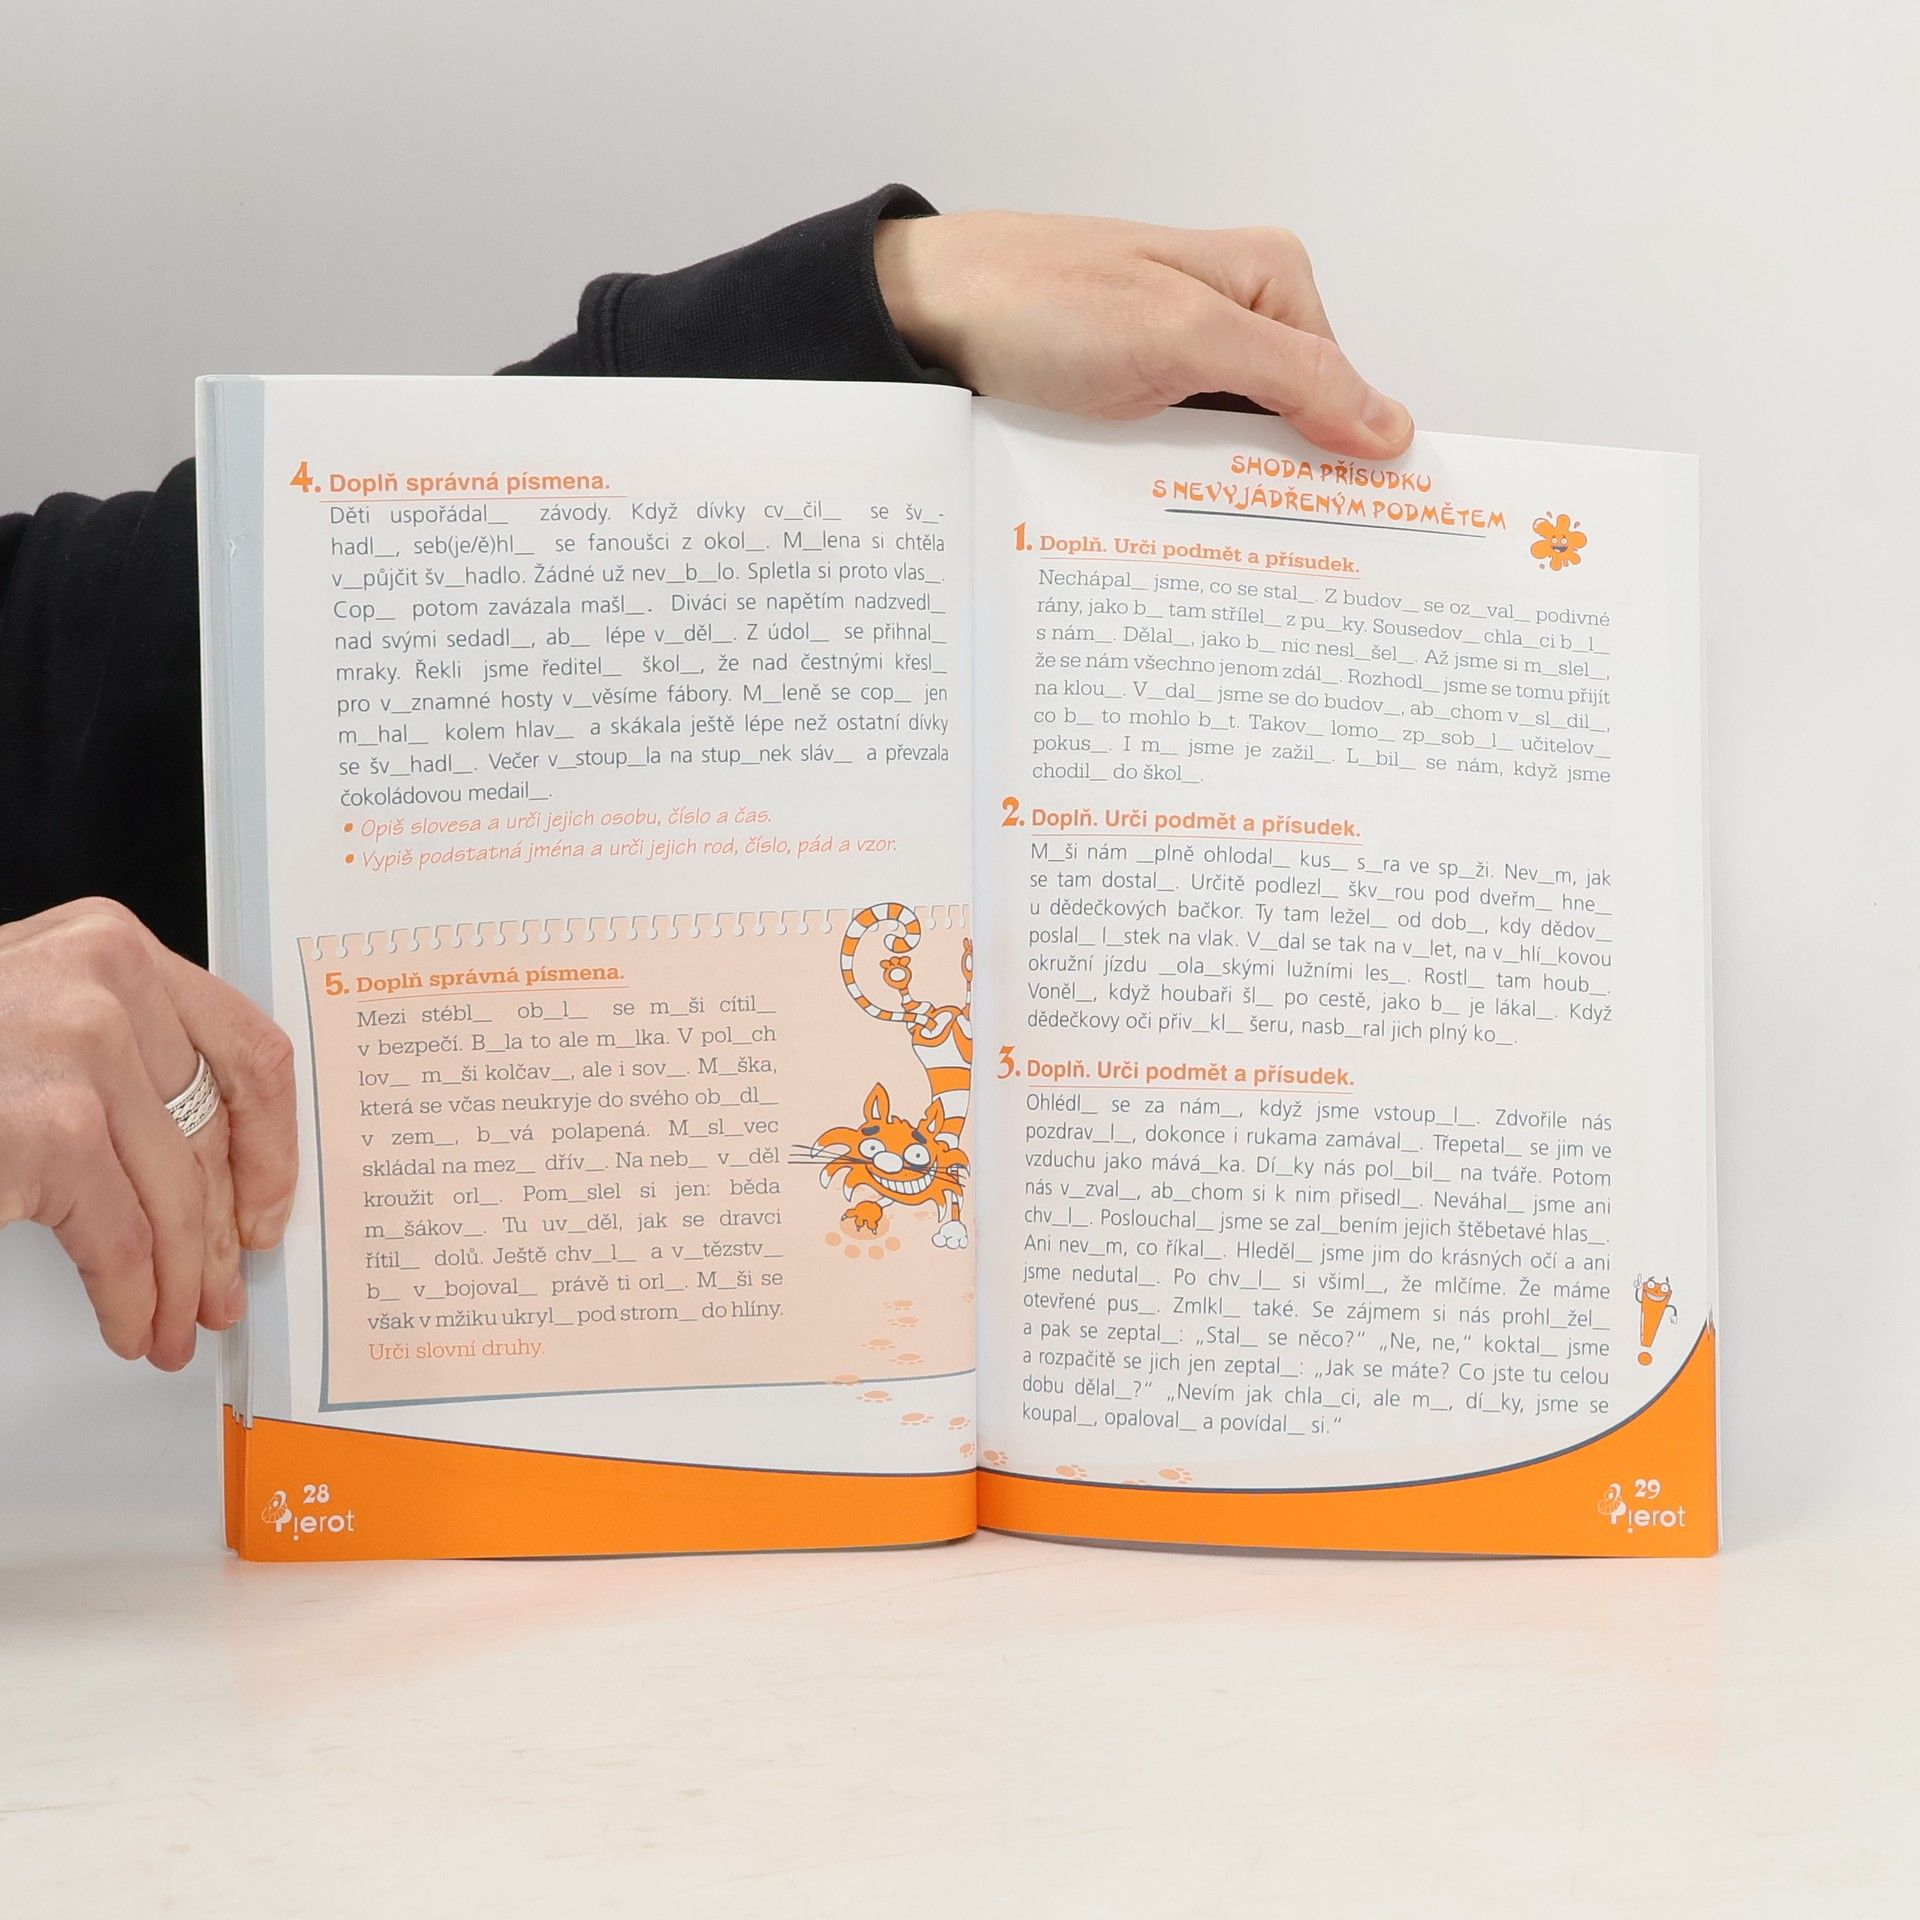 4. Doplň správná písmena.
Děti uspořádal__ závody. Když dívky cv__čil__ se šv__-
hadl__, seb(je/ě)hl__ se fanoušci z okol__. M__lena si chtěla
v__půjčit šv__hadlo. Žádné už nev__b__lo. Spletla si proto vlas__.
Cop__ potom zavázala mašl__. Diváci se napětím nadzvedl__
nad svými sedadl__, ab__ lépe v__děl__. Z údol__ se přihnal__
mraky. Řekli jsme ředitel__ škol__, že nad čestnými křesl__
pro v__znamné hosty v__věsíme fábory. M__leně se cop__ jen
m__hal__ kolem hlav__ a skákala ještě lépe než ostatní dívky
se šv__hadl__. Večer v__stoup__la na stup__nek sláv__ a převzala
čokoládovou medail__.
• Opiš slovesa a urči jejich osobu, číslo a čas.
• Vypiš podstatná jména a urči jejich rod, číslo, pád a vzor.
5. Doplň správná písmena.
Mezi stébl__ ob__l__ se m__ši cítil__
v bezpečí. B__la to ale m__lka. V pol__ch
lov__ m__ši kolčav__, ale i sov__. M__ška,
která se včas neukryje do svého ob__dl__
v zem__, b__vá polapená. M__sl__vec
skládal na mez__ dřív__. Na neb__ v__děl
kroužit orl__. Pom__slel si jen: běda
m__šákov__. Tu uv__děl, jak se dravci
řítil__ dolů. Ještě chv__l__ a v__tězstv__
b__ v__bojoval__ právě ti orl__. M__ši se
však v mžiku ukryl__ pod strom__ do hlíny.
Urči slovní druhy.
28
Pierot
SHODA PŘÍSUDKU
S NEVYJÁDŘENÝM PODMĚTEM
1. Doplň. Urči podmět a přísudek.
Nechápal__ jsme, co se stal__. Z budov__ se oz__val__ podivné
rány, jako b__ tam střílel__ z pu__ky. Sousedov__ chla__ci b__l__
s nám__. Dělal__, jako b__ nic nesl__šel__. Až jsme si m__slel__,
že se nám všechno jenom zdál__. Rozhodl__ jsme se tomu přijít
na klou__. V__dal__ jsme se do budov__, ab__chom v__sl__dil__,
co b__ to mohlo b__t. Takov__ lomo__ zp__sob__l__ učitelov__
pokus__. I m__ jsme je zažil__. L__bil__ se nám, když jsme
chodil__ do škol__.
2. Doplň. Urči podmět a přísudek.
M__ši nám __plně ohlodal__ kus__ s__ra ve sp__ži. Nev__m, jak
se tam dostal__. Určitě podlezl__ škv__rou pod dveřm__ hne__
u dědečkových bačkor. Ty tam ležel__ od dob__, kdy dědov__
poslal__ l__stek na vlak. V__dal se tak na v__let, na v__hlí__kovou
okružní jízdu __ola__skými lužními les__. Rostl__ tam houb__.
Voněl__, když houbaři šl__ po cestě, jako b__ je lákal__. Když
dědečkovy oči přiv__kl__ šeru, nasb__ral jich plný ko__.
3. Doplň. Urči podmět a přísudek.
Ohlédl__ se za nám__, když jsme vstoup__l__. Zdvořile nás
pozdrav__l__, dokonce i rukama zamával__. Třepetal__ se jim ve
vzduchu jako mává__ka. Dí__ky nás pol__bil__ na tváře. Potom
nás v__zval__, ab__chom si k nim přisedl__. Neváhal__ jsme ani
chv__l__. Poslouchal__ jsme se zal__bením jejich štěbetavé hlas__.
Ani nev__m, co říkal__. Hleděl__ jsme jim do krásných očí a ani
jsme nedutal__. Po chv__l__ si všiml__, že mlčíme. Že máme
otevřené pus__. Zmlkl__ také. Se zájmem si nás prohl__žel__
a pak se zeptal__: „Stal__ se něco?“ „Ne, ne,“ koktal__ jsme
a rozpačitě se jich jen zeptal__: „Jak se máte? Co jste tu celou
dobu dělal__?“ „Nevím jak chla__ci, ale m__, dí__ky, jsme se
koupal__, opaloval__ a povídal__ si.“
29
Pierot